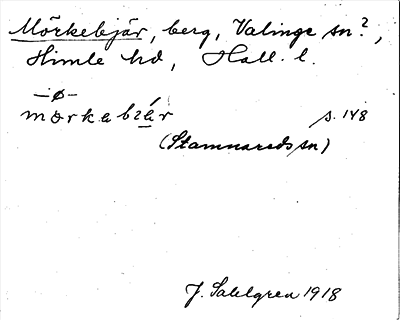 Mörkebjär, berg, Valinge sn?,
Himle hd, Hall. l.
–ø–
mørkabzǽr s. 148
(Stamnareds sn)
J. Sahlgren 1918